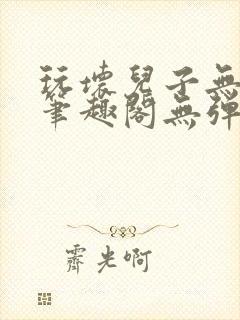 玩壞兒子無
筆趣閣無彈
霽光啊